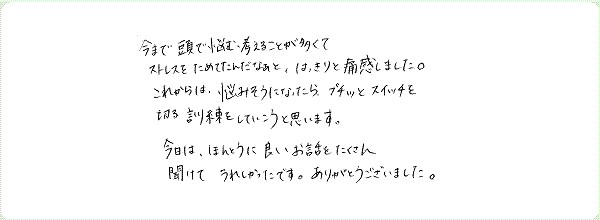 今まで 頭で悩む・考えることが多くて
ストレスを ためてたんだなぁと、はっきりと痛感しました。
これからは、悩みそうになったら プチッと スイッチを
切る 訓練をしていこうと思います。
今日は、ほんとうに 良い お話をたくさん
聞けて うれしかったです。ありがとうございました。